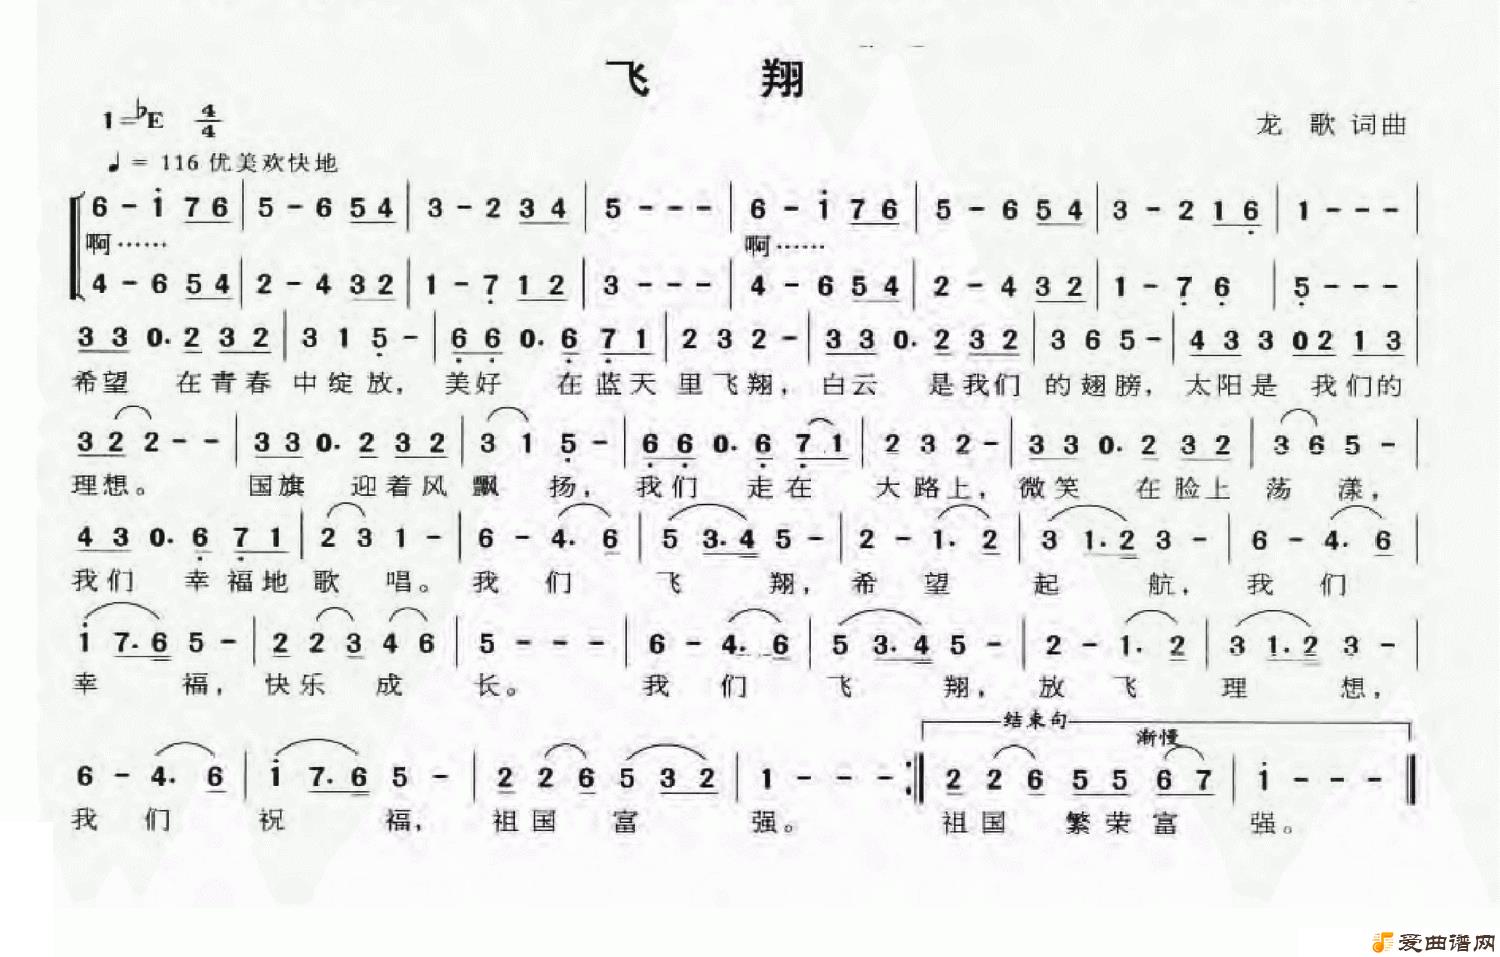 飞 翔
1=♭E 4/4
龙 歌 词曲
♩= 116 优美欢快地
6 - i 7 6 | 5 - 6 5 4 | 3 - 2 3 4 | 5 - - - | 6 - i 7 6 | 5 - 6 5 4 | 3 - 2 1 6 | 1 - - - |
啊…… 啊……
4 - 6 5 4 | 2 - 4 3 2 | 1 - 7 1 2 | 3 - - - | 4 - 6 5 4 | 2 - 4 3 2 | 1 - 7 6 | 5 - - - |
3 3 0. 2 3 2 | 3 1 5 - | 6 6 0. 6 7 1 | 2 3 2 - | 3 3 0. 2 3 2 | 3 6 5 - | 4 3 3 0 2 1 3 |
希望 在青春 中绽放, 美好 在蓝天 里飞翔, 白云 是我们 的翅膀, 太阳是 我们的
3 2 2 - - | 3 3 0. 2 3 2 | 3 1 5 - | 6 6 0. 6 7 1 | 2 3 2 - | 3 3 0. 2 3 2 | 3 6 5 - |
理想。 国旗 迎着风 飘 扬, 我们 走在 大路上, 微笑 在脸上 荡 漾,
4 3 0. 6 7 1 | 2 3 1 - | 6 - 4. 6 | 5 3. 4 5 - | 2 - 1. 2 | 3 1. 2 3 - | 6 - 4. 6 |
我们 幸福地 歌 唱。 我 们 飞 翔, 希 望 起 航, 我 们
i 7. 6 5 - | 2 2 3 4 6 | 5 - - - | 6 - 4. 6 | 5 3. 4 5 - | 2 - 1. 2 | 3 1. 2 3 - |
幸 福, 快乐 成 长。 我 们 飞 翔, 放 飞 理 想,
结束句
渐慢
6 - 4. 6 | i 7. 6 5 - | 2 2 6 5 3 2 | 1 - - - :‖ 2 2 6 5 5 6 7 | i - - - ‖
我 们 祝 福, 祖国 富 强。 祖国 繁荣富 强。
爱曲谱网